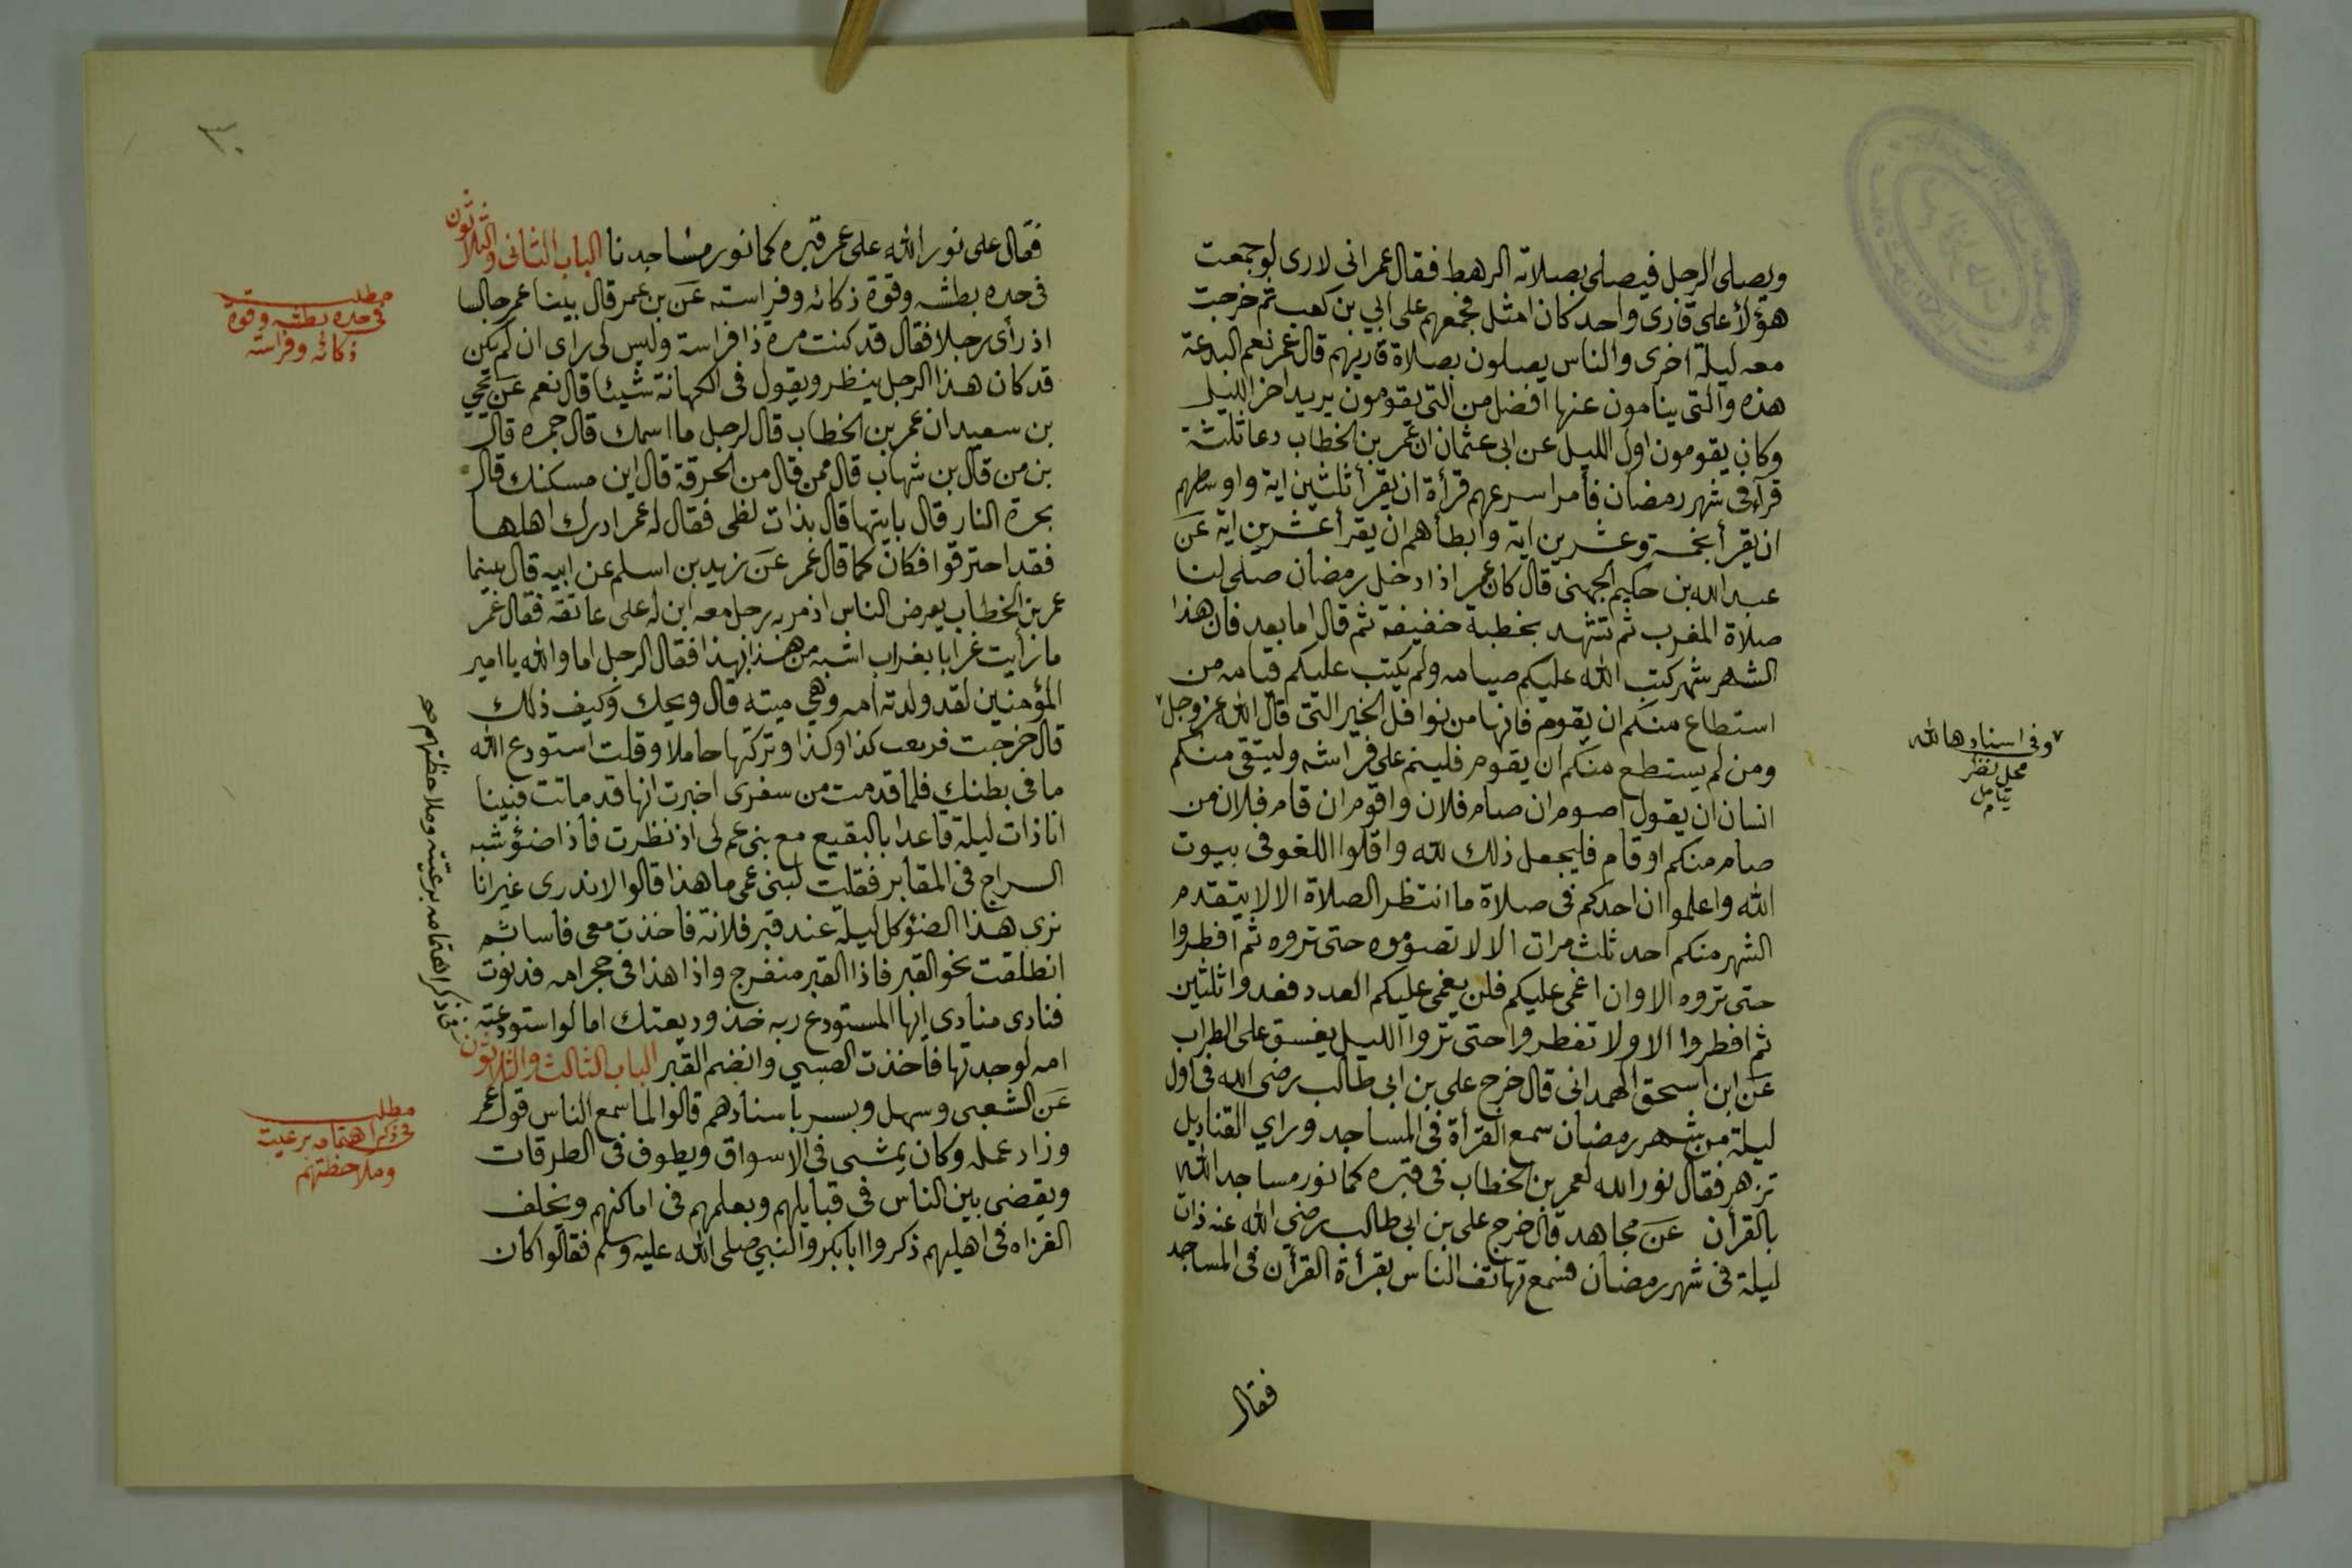 ويصلى الرجل فيصلى بصلاته الرهط فقال عمر انى لارى لو جمعت
هؤلأ على قارى واحد كان امثل فجمعهم على ابي بن كعب ثم خرجت
معه ليلة اخرى والناس يصلون بصلاة قاريهم قال عمر نعم البدعة
هذه والتى ينامون عنها افضل من التى يقومون يريد اخر الليل
وكان يقومون اول الليل عن ابى عثمان ان عمر بن الخطاب دعا ثلثة
قرآء فى شهر رمضان فأمر اسرعهم قرأة ان يقرأ ثلثين اية واوسطهم
ان يقرأ بخمسة وعشرين اية وابطأهم ان يقرأ عشرين اية عن
عبد الله بن حكيم الجهنى قال كان عمر اذا دخل رمضان صلى لنا
صلاة المغرب ثم تشهد بخطبة خفيفة ثم قال اما بعد فان هذا
الشهر شهر كتب الله عليكم صيامه ولم يكتب عليكم قيامه من
استطاع منكم ان يقوم فانها من نوافل الخير التى قال الله عز وجل ٧
ومن لم يستطع منكم ان يقوم فلينم على فراشه وليتقى منكم
انسان ان يقول اصوم ان صام فلان واقوم ان قام فلان من
صام منكم او قام فليجعل ذلك لله واقلوا اللغو فى بيوت
الله واعلموا ان احدكم فى صلاة ما انتظر الصلاة الا لا يتقدم
الشهر منكم احد ثلث مرات الا لا تصوموه حتى تروه ثم افطروا
حتى تروه الا وان اغمى عليكم فلن يغمى عليكم العدد فعدوا ثلثين
ثم افطروا الا ولا تفطروا حتى تروا الليل يغسق على الظراب
عن ابن اسحق الهمدانى قال خرج على بن ابى طالب رضى الله فى اول
ليلة من شهر رمضان سمع القرأة فى المساجد وراي القناديل
تزهر فقال نور الله لعمر بن الخطاب فى قبره كما نور مساجد الله
بالقرأن عن مجاهد قال خرج على بن ابى طالب رضي الله عنه ذات
ليلة فى شهر رمضان فسمع تهاتف الناس بقرأة القرأن فى المساجد
فقال
٧ وفى اسنادها لله
محل نظر
يتامل
٣٠
فقال على نور الله على عمر قبره كما نور مساجدنا الباب الثانى والثلاثون
فى حده بطشه وقوة ذكائه وفراسته عن بن عمر قال بينا عمر جالسا
اذ رأى رجلا فقال قد كنت مرة ذا فراسة وليس لى راى ان لم يكن
قد كان هذا الرجل ينظر ويقول فى الكهانة شيئا قال نعم عن يحيي
بن سعيد ان عمر بن الخطاب قال لرجل ما اسمك قال جمرة قال
بن من قال بن شهاب قال ممن قال من الحرقة قال اين مسكنك قال
بحرة النار قال بايتها قال بذات لظى فقال له عمر ادرك اهلها
فقد احترقوا فكان كما قال عمر عن زيد بن اسلم عن ابيه قال بينما
عمر بن الخطاب يعرض الناس اذ مر به رجل معه ابن له على عاتقه فقال عمر
ما رأيت غرابا بغراب اشبه من هذا بهذا فقال الرجل اما والله يا امير
المؤمنين لقد ولدته امه وهي ميته قال ويحك وكيف ذلك
قال خرجت فى بعث كذا وكذا وتركتها حاملا وقلت استودع الله
ما فى بطنك فلما قدمت من سفرى اخبرت انها قد ماتت فبينا
انا ذات ليلة قاعدا بالبقيع مع بنى عم لى اذ نظرت فاذا ضؤ شبه
السراج فى المقابر فقلت لبنى عمى ما هذا قالوا لا ندرى غير انا
نرى هذا الضؤ كل ليلة عند قبر فلانة فاخذت معى فاسا ثم
انطلقت نحو القبر فاذا القبر منفرج واذا هذا فى حجر امه فدنوت
فنادى منادى ايها المستودع ربه خذ وديعتك اما لو استودعته
امه لوجدتها فأخذت الصبى وانضم القبر الباب الثالث والثلاثون
عن الشعبى وسهل وبسر باسنادهم قالوا لما سمع الناس قول عمر
وزاد عمله وكان يمشى فى الاسواق ويطوف فى الطرقات
ويقضى بين الناس فى قبايلهم ويعلمهم فى اماكنهم ويخلف
الغزاه فى اهليهم ذكروا ابا بكر والنبي صلى الله عليه وسلم فقالوا كان
مطلب
فى حده بطشه وقوة
ذكائه وفراسته
فى ذكر اهتمامه برعيته وملاحظتهم صح
مطلب
فى ذكر اهتمامه برعيت
وملاحظتهم